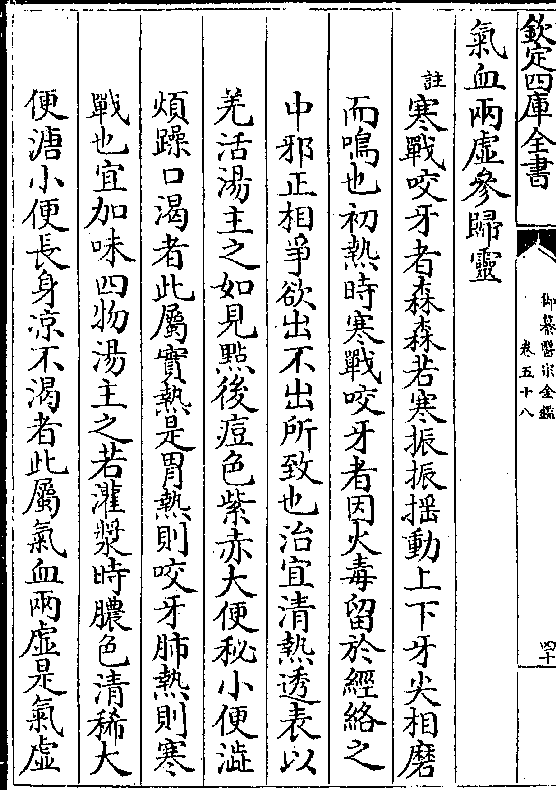 欽定四庫全書
御纂醫宗金鑑
卷五十八
四十
氣血兩虛參歸靈
註寒戰咬牙者森森若寒振振揺動上下牙尖相磨
而鳴也初熱時寒戰咬牙者因火毒留於經絡之
中邪正相爭欲出不出所致也治宜清熱透表以
羌活湯主之如見點後痘色紫赤大便秘小便澁
煩躁口渴者此屬實熱是胃熱則咬牙肺熱則寒
戰也宜加味四物湯主之若灌漿時膿色清稀大
便溏小便長身凉不渴者此屬氣血兩虛是氣虛